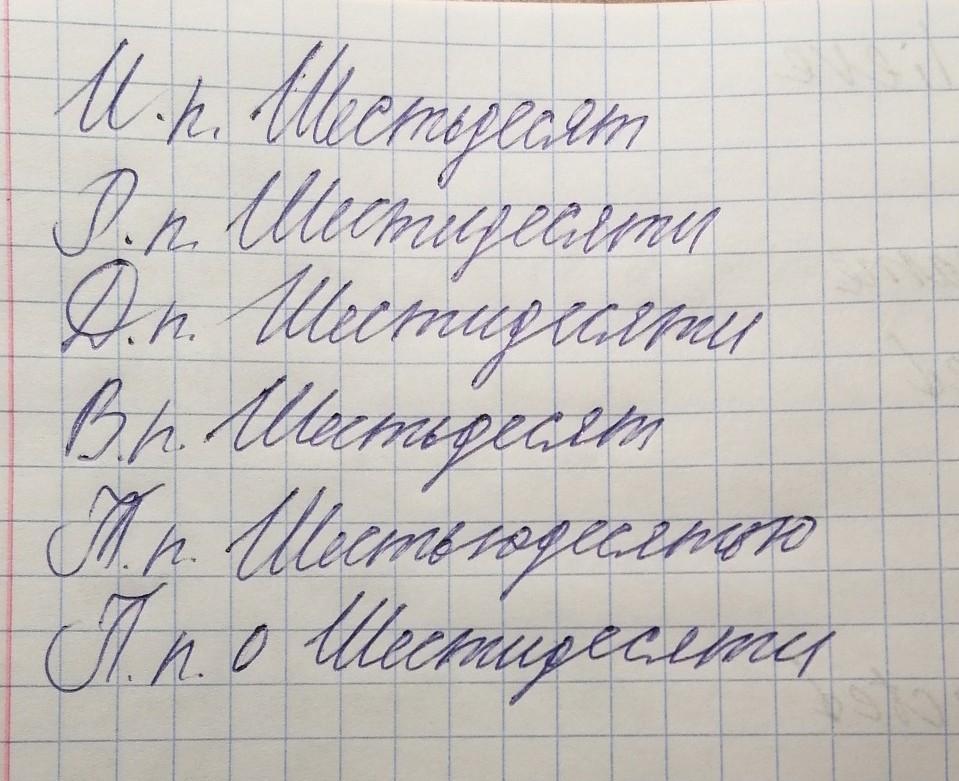 И.п. Шестьдесят
Р.п. Шестидесяти
Д.п. Шестидесяти
В.п. Шестьдесят
Т.п. Шестьюдесятью
П.п. о Шестидесяти